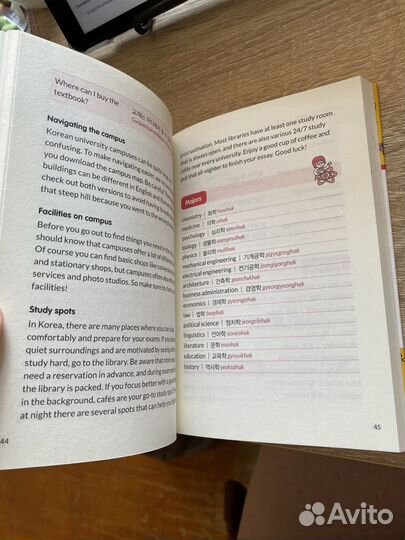 Where can I buy the
textbook?
Navigating the campus
Korean university campuses can be quite
confusing. To make navigating easier
you download the campus map. Be careful
buildings can be different in English and
check out both versions to avoid having
that steep hill because you went to the wrong
Facilities on campus
Before you go out to find things you need in
should know that campuses offer a lot of different
Of course you can find basic shops like
and stationary shops, but campuses often also
services and photo studios. So make sure to
facilities!
Study spots
In Korea, there are many places where you can
comfortably and prepare for your exams. If you
quiet surroundings and are motivated by seeing
study hard, go to the library. Be aware that
need a reservation in advance, and during exam
the library is packed. If you focus better with
in the background, cafés are your go-to study
at night there are several spots that can help
44
procrastination. Most libraries have at least one study room
that is always open, and there are also various 24/7 study
cafés near every university. Enjoy a good cup of coffee and
pull that all-nighter to finish your essay. Good luck!
Majors
chemistry | 화학 hwahak
medicine | 의학 uihak
psychology | 심리학 simnihak
biology | 생물학 saengmulhak
physics | 물리학 mullihak
mechanical engineering | 기계공학 gigyegonghak
electrical engineering | 전기공학 jeongigonghak
architecture | 건축학 geonchukhak
business administration | 경영학 gyeongyeonghak
economics | 경제학 gyeongjehak
law | 법학 beophak
political science | 정치학 jeongchihak
linguistics | 언어학 eoneohak
literature | 문학 munhak
education | 교육학 gyoyukhak
history | 역사학 yeoksahak
45
Avito